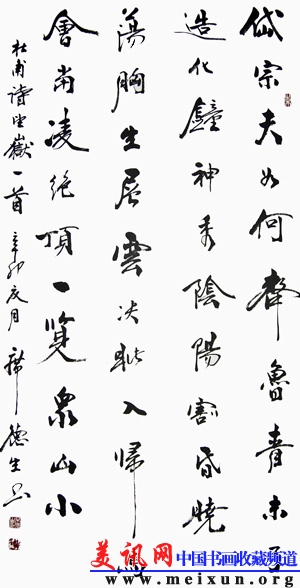 岱宗夫如何齊魯青未了
造化鐘神秀陰陽割昏曉
蕩胸生層雲决眥入歸鳥
會當凌絕頂一覽眾山小
杜甫詩望嶽一首 辛卯夏月 席德生书
美讯网 中国书画收藏频道
www.meixun.org